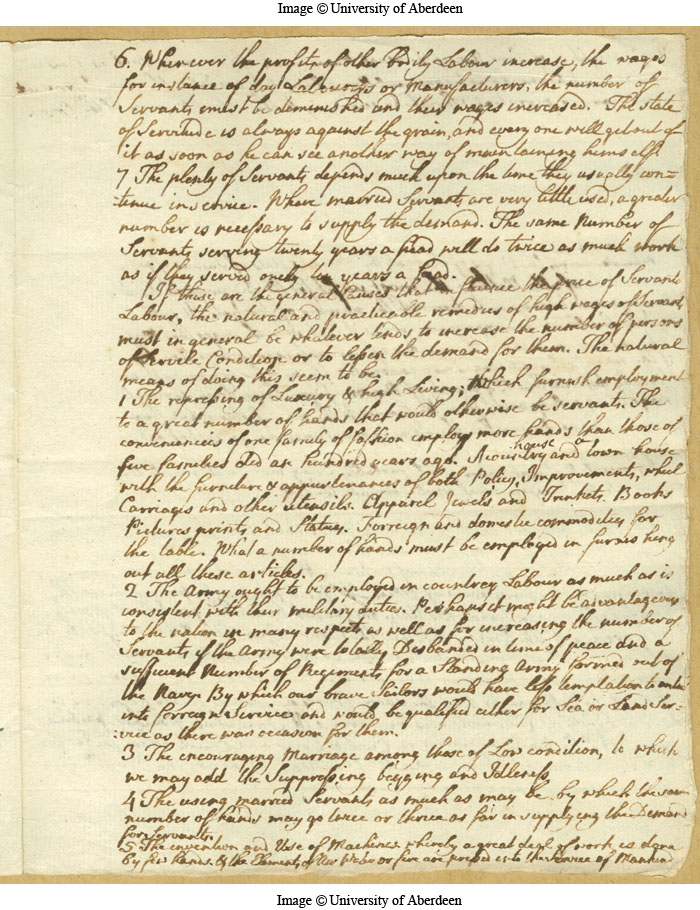 Image © University of Aberdeen
6. Wherever the profits of other Bodily Labour increase, the wages
for instance of day Labourers or Manufacturers, the number of
Servants must be diminished and their wages increased. The state
of Servitude is always against the grain, and every one will get out of
it as soon as he can see another way of maintaining himself.
7 The plenty of Servants depends much upon the time they usually con=
tinue in service. Where married Servants are very little used, a greater
number is necessary to supply the demand. The same Number of
Servants serving twenty years a head will do twice as much work
as if they served onely ten years a head.
If these are the general causes that influence the price of Servants
Labour, the natural and practicable remedies of high wages of Servant
must in general be whatever tends to increase the number of persons
of Servile Condition or to lessen the demand for them. The natural
means of doing this seem to be
1 The repressing of Luxury & high Living; which furnish employment
to a great number of hands that would otherwise be servants. The
conveniencies of one family of fashion employ more hands than those of
five families did an hundred years ago. A country house and a town house
with the furniture & appurtenances of both Policy, Improvements, wheel
Carriages and other utensils. Apparel Jewels and Trinkets, Books
Pictures prints and Statues. Forreign and domestic commodities for
the table. What a number of hands must be employed in furnishing
out all these articles.
2 The Army ought to be employed in countrey Labour as much as is
consistent with their military duties. Perhaps it might be advantageous
to the nation in many respects as well as for increasing the number of
Servants if the Army were totally Disbanded in time of peace and a
sufficient Number of Regiments for a Standing Army formed out of
the Navy By which our brave Sailors would have less temptation to enter
into forreign Service and would be qualified either for Sea or Land Ser=
vice as there was occasion for them.
3 The encouraging Marriage among those of Low condition, to which
we may add the Suppressing begging and Idleness
4 The using married Servants as much as may be by which the same
number of hands may go twice or thrice as far in supplying the Demand
for Servants.
5 The invention and Use of Machines whereby a great deal of work is done
by few hands & the Elements of Air Water or fire are pressed into the Service of Mankind
Image © University of Aberdeen